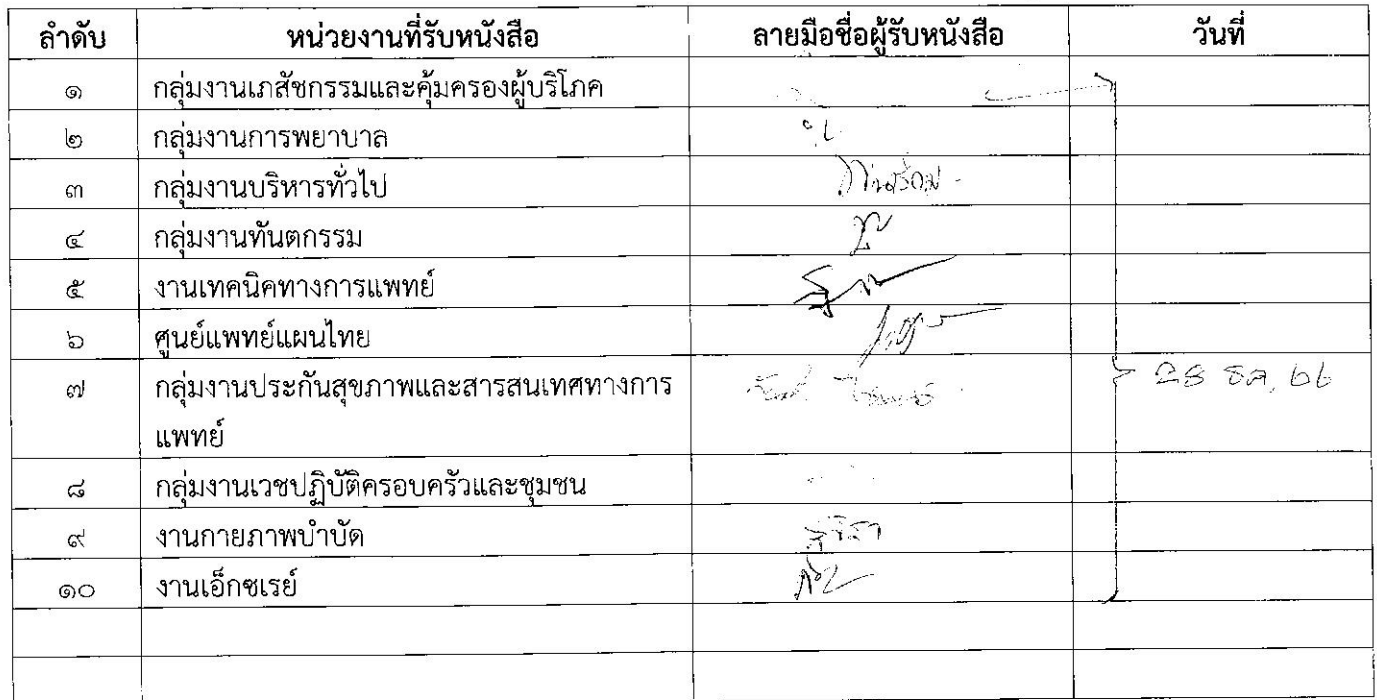 ลำดับ หน่วยงานที่รับหนังสือ ลายมือชื่อผู้รับหนังสือ วันที่
๑ กลุ่มงานเภสัชกรรมและคุ้มครองผู้บริโภค
๒ กลุ่มงานการพยาบาล
๓ กลุ่มงานบริหารทั่วไป
๔ กลุ่มงานทันตกรรม
๕ งานเทคนิคทางการแพทย์
๖ ศูนย์แพทย์แผนไทย
๗ กลุ่มงานประกันสุขภาพและสารสนเทศทางการ ๒๘ ธค, ๖๖
แพทย์
๘ กลุ่มงานเวชปฏิบัติครอบครัวและชุมชน
๙ งานกายภาพบำบัด
๑๐ งานเอ็กซเรย์